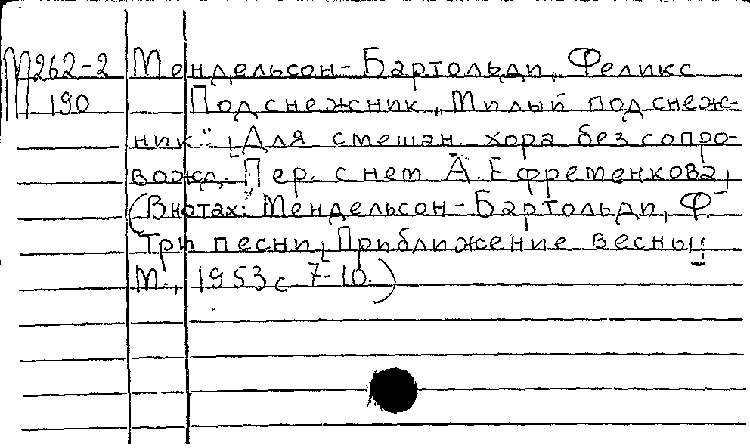 М262-2 Мендельсон-Бартольди, Феликс
190 Подснежник, "Милый подснеж-
ник". [Для смешан. хора без сопро-
вожд. Пер. с нем. А. Ефременкова]
(В нотах: Мендельсон-Бартольди, Ф.
Три песни. [Приближение весны]
М., 1953 с. 7-10.)